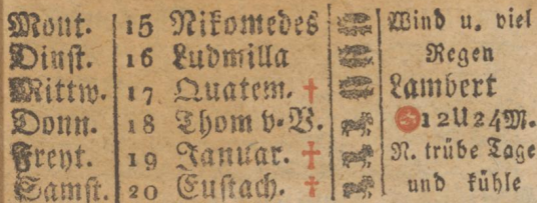 Mont. 15 Nikomedes Wind u. viel
Dinst. 16 Ludmilla Regen
Mittw. 17 Quatem. † Lambert
Donn. 18 Thom v. V. 12 U 24 M.
Freyt. 19 Januar. † N. trübe Tage
Samst. 20 Eustach. † und kühle